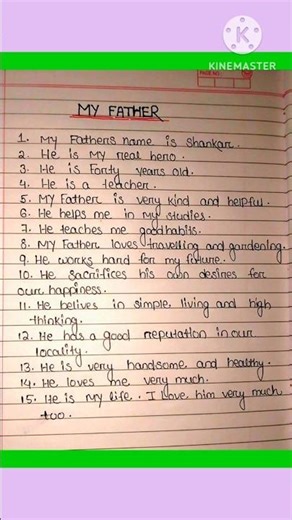 KINEMASTER
PAGE NO.
MY FATHER
1. My Fathers name is Shankar.
2. He is My real hero.
3. He is Forty years old.
4. He is a teacher.
5. My Father is very kind and helpful.
6. He helps me in My studies.
7. He teaches me good habits.
8. My Father loves travelling and gardening.
9. He works hard for my future.
10. He Sacrifices his own desires for
our happiness.
11. He belives in simple living and high
thinking.
12. He has a good reputation in our
locality.
13. He is very handsome and healthy.
14. He loves me very much.
15. He is My life. I love him very much
too.